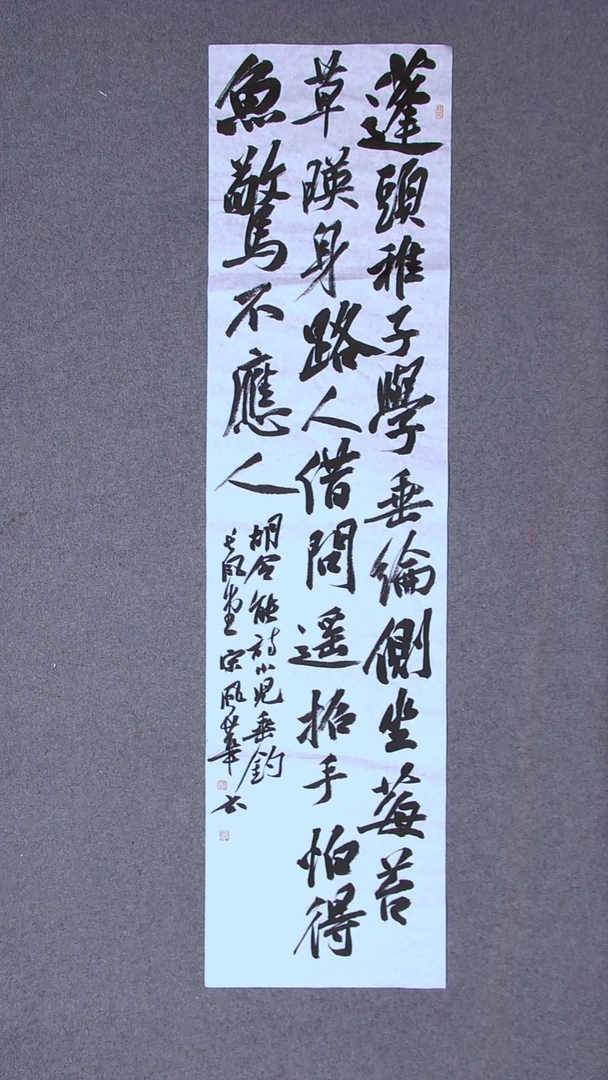 蓬頭稚子學垂綸側坐莓苔
草暎身路人借問遥招手怕得
魚驚不應人
胡令能詩小児垂釣
宋風華书